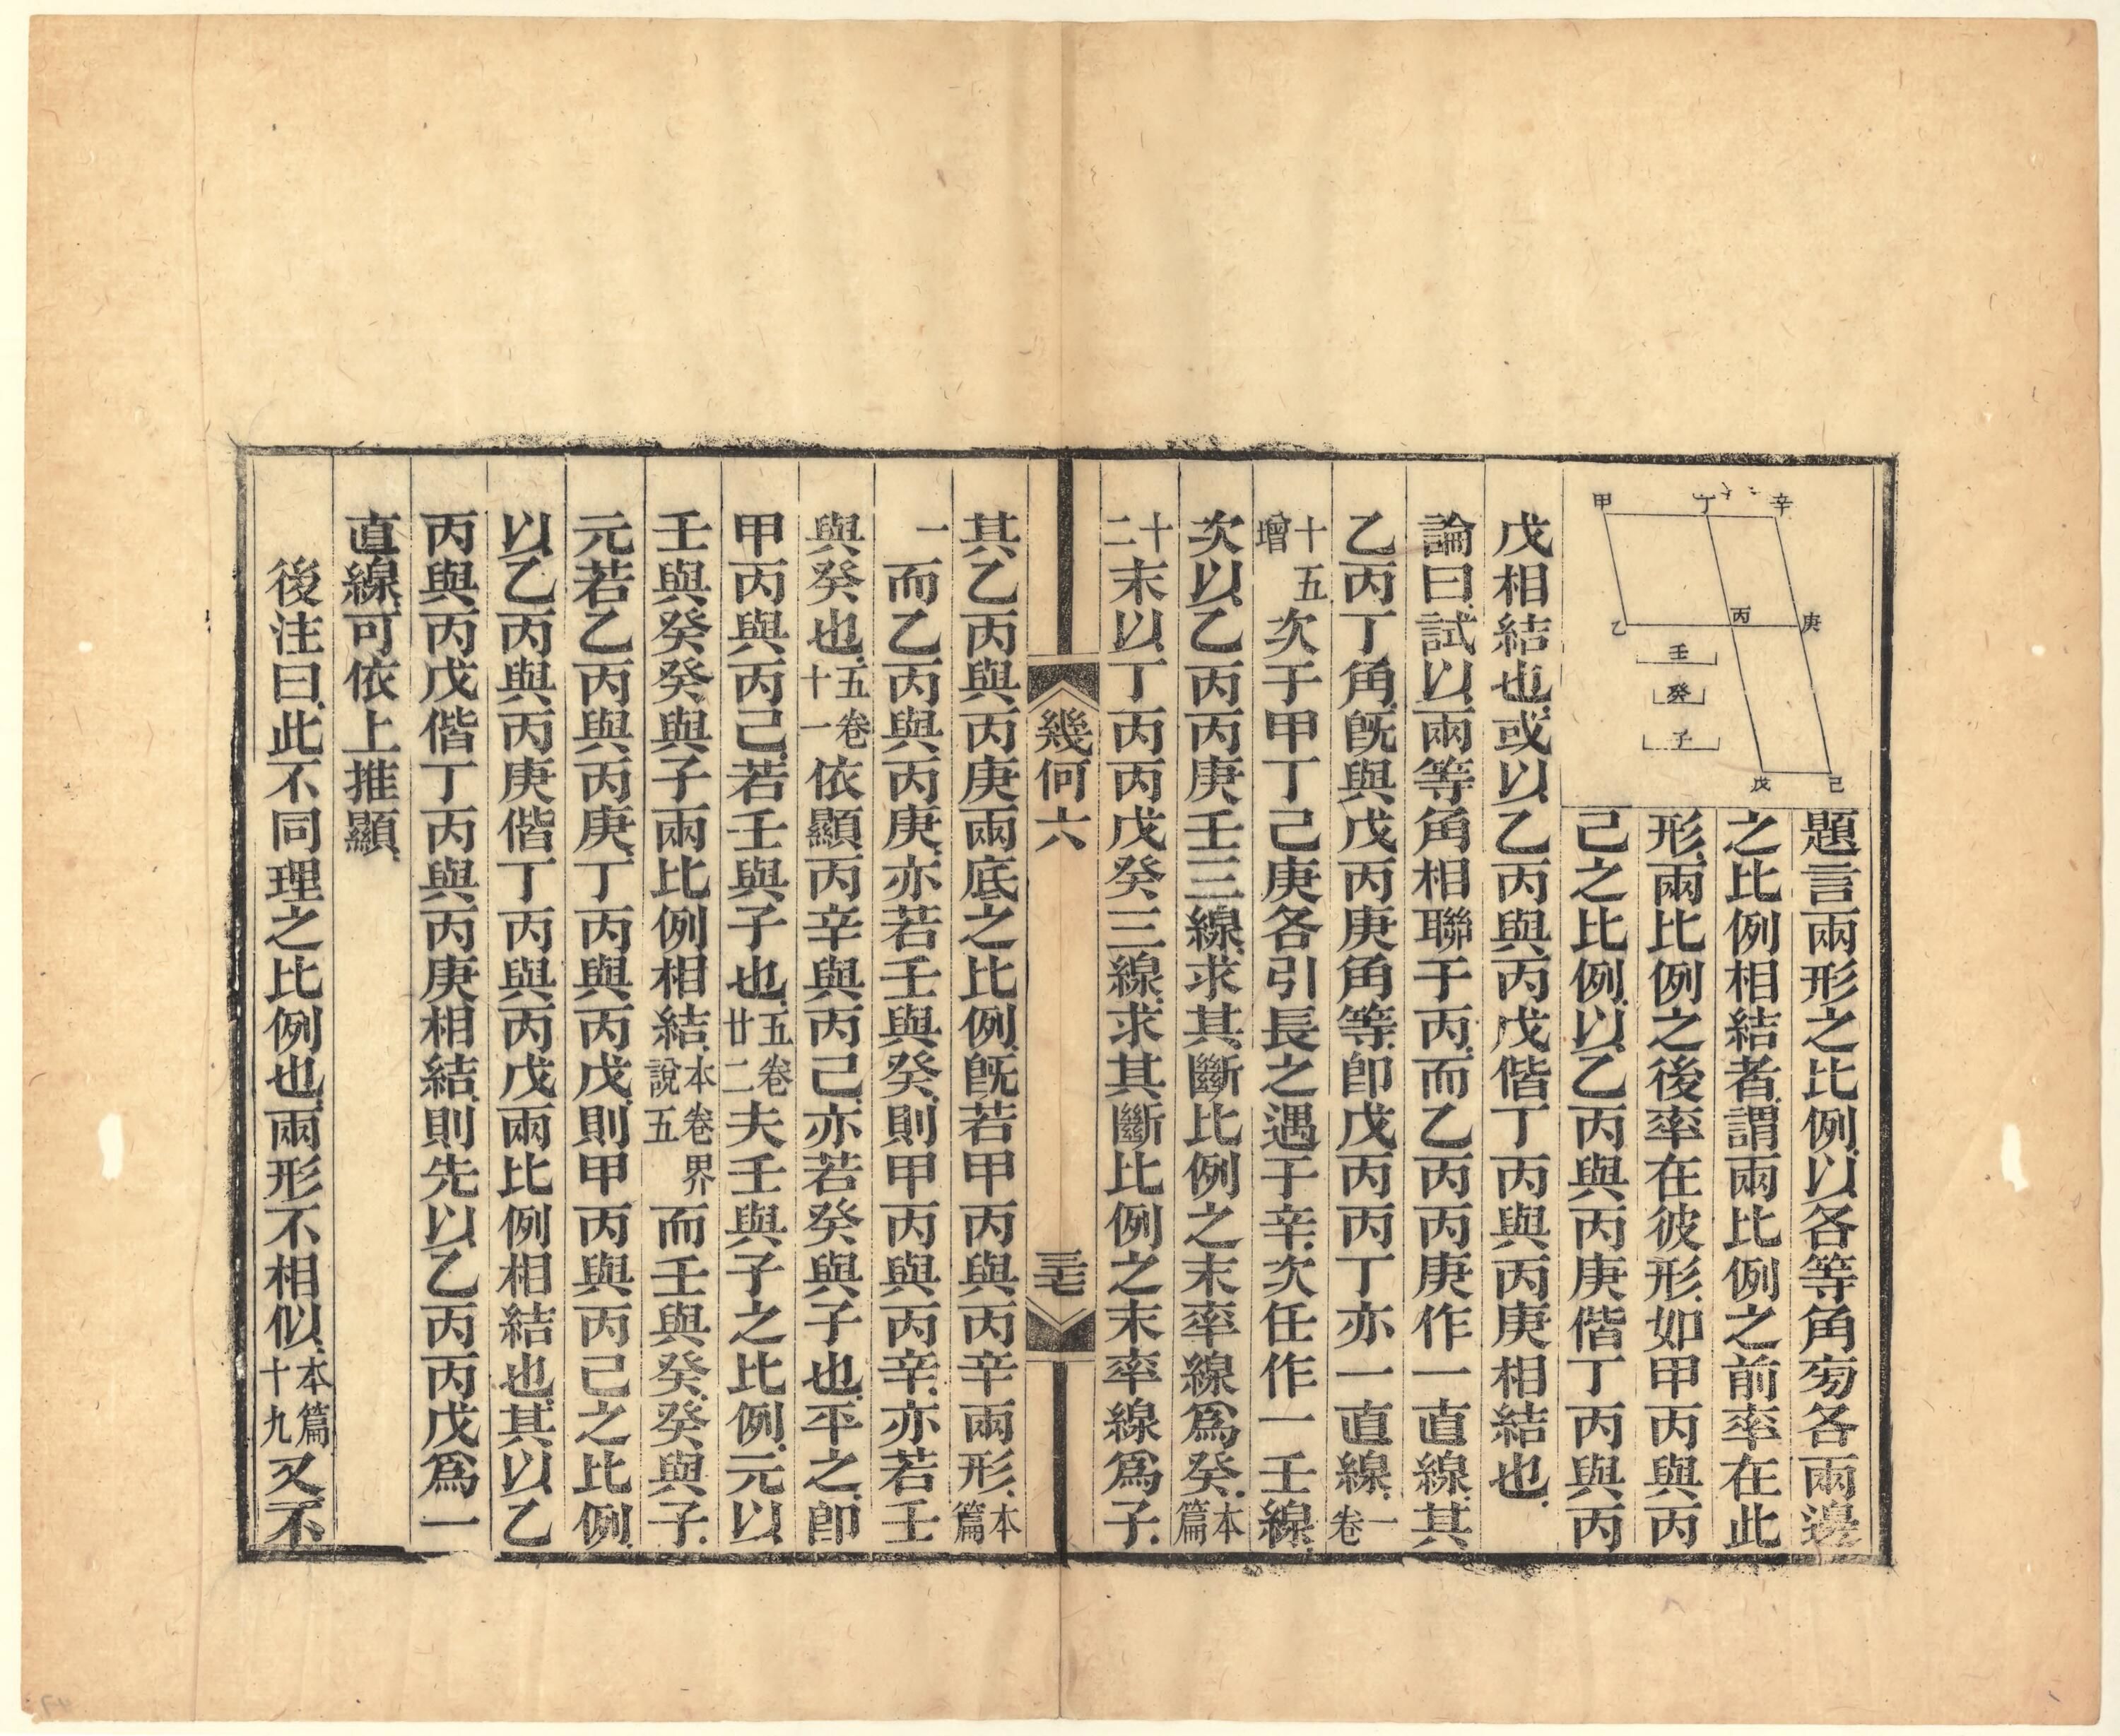 甲 丁 辛
乙 丙 庚
壬
癸
子
戊 己
題言兩形之比例以各等角旁各兩邊
之比例相結者謂兩比例之前率在此
形兩比例之後率在彼形如甲丙與丙
己之比例以乙丙與丙庚偕丁丙與丙
戊相結也或以乙丙與丙戊偕丁丙與丙庚相結也
論曰試以兩等角相聯于丙而乙丙丙庚作一直線其
乙丙丁角旣與戊丙庚角等卽戊丙丙丁亦一直線一卷
十五增次于甲丁己庚各引長之遇于辛次任作一壬線
次以乙丙丙庚壬三線求其斷比例之末率線爲癸本篇
十二末以丁丙丙戊癸三線求其斷比例之末率線爲子
幾何六 三七
其乙丙與丙庚兩底之比例旣若甲丙與丙辛兩形本篇
一而乙丙與丙庚亦若壬與癸則甲丙與丙辛亦若壬
與癸也五卷十一依顯丙辛與丙己亦若癸與子也平之卽
甲丙與丙己若壬與子也五卷廿二夫壬與子之比例元以
壬與癸癸與子兩比例相結本卷界說五而壬與癸癸與子
元若乙丙與丙庚丁丙與丙戊則甲丙與丙己之比例
以乙丙與丙庚偕丁丙與丙戊兩比例相結也其以乙
丙與丙戊偕丁丙與丙庚相結則先以乙丙丙戊爲一
直線可依上推顯
後注曰此不同理之比例也兩形不相似本篇十九又不